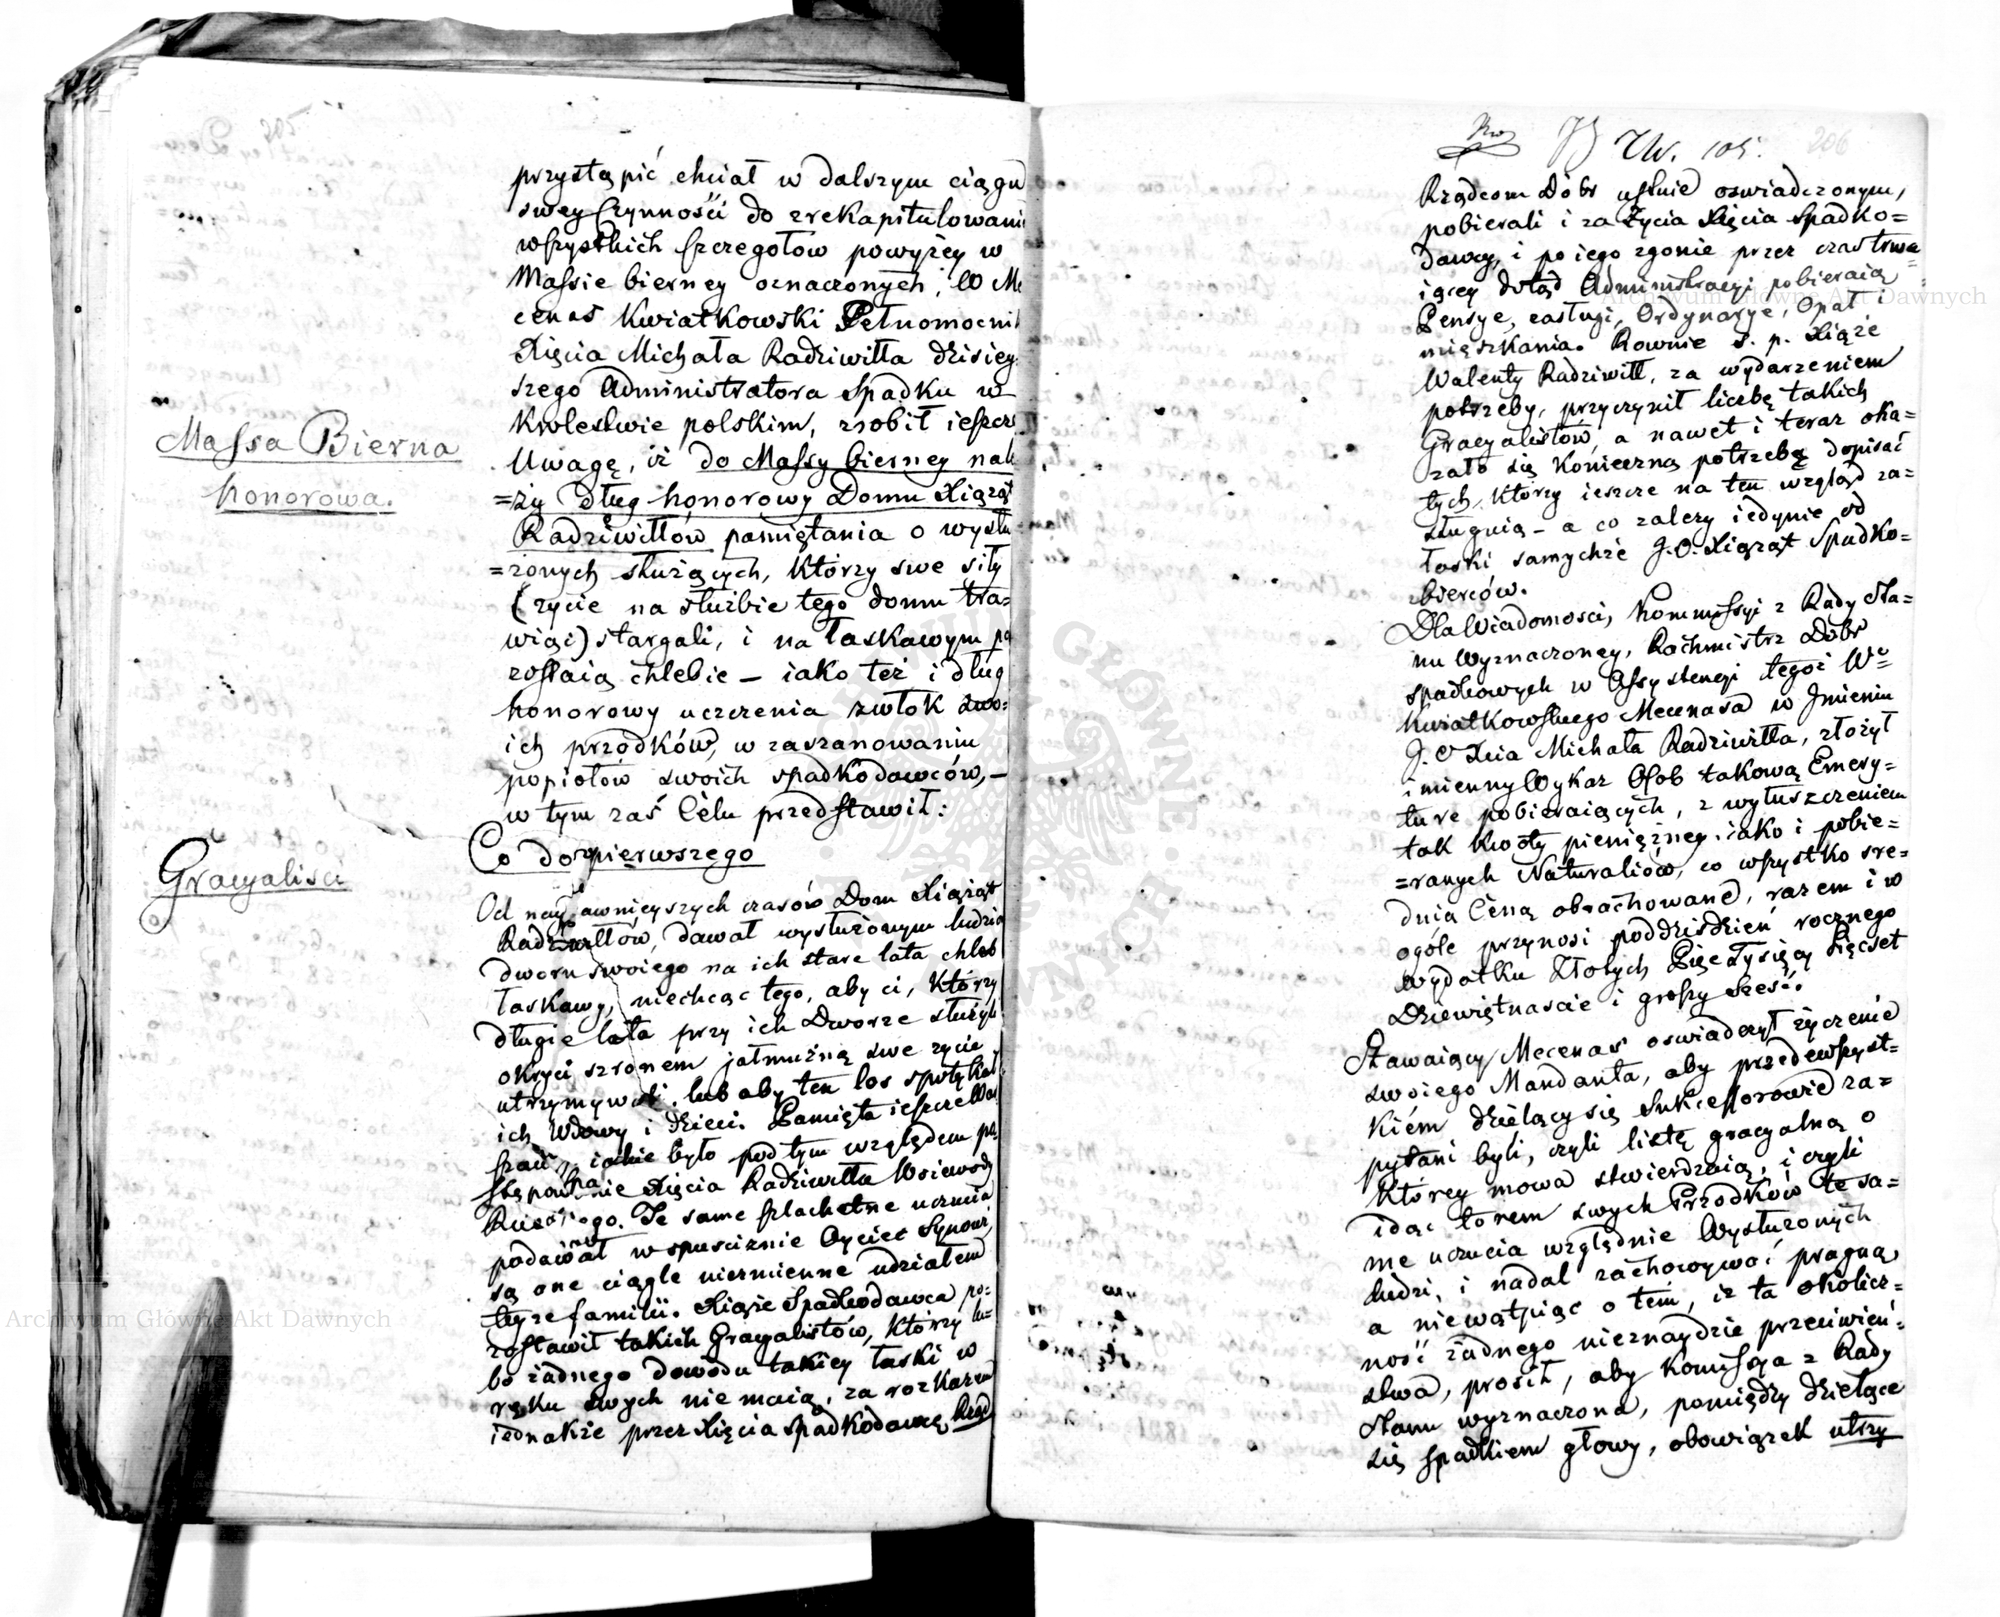 205
przystąpić chciał w dalszym ciągu
swey Czynności do zrekapitulowani
wszystkich szczegołów powyżey w
Massie bierney oznaczonych, W Me
cenas Kwiatkowski Pełnomocni
Xięcia Michała Radziwiłła dzisiey
szego Administratora Spadku w
Krolestwie polskim, zrobił ieszcze
Massa Bierna
honorowa.
Uwagę, iż do Massy bierney nale
=ży dług honorowy Domu Xiążąt
Radziwiłłów pamiętania o wysłu
=żonych służących, którzy swe siły
(życie na służbie tego domu tra=
wiąc) stargali, i na łaskawym po
zostaią chlebie – iako też i dług
honorowy uczczenia zwłok swo=
ich przodków, w zaszanowaniu
popiołów swoich spadkodawców,–
w tym zaś Cèlu przedstawił:
Co do pierwszego
Gracyalisci
Od naydawnieyszych czasów Dom Xiążąt
Radziwiłłów, dawał wysłużonym ludzio
dworu swoiego na ich stare lata chleb
łaskawy, niechcąc tego, aby ci, którzy
długie lata przy ich Dworze służyli
okryci szronem jałmużną swe życie
utrzymywali, lub aby ten los spotykał
ich Wdowy i dzieci. Pamięta ieszcze War
szawa, iakie było pod tym względem po
stępowanie Xięcia Radziwiłła Woiewody
Te same szlachetne uczucia
podawał w spusciznie Oyciec Synowi,
są one ciągle niezmienne udziałem
teyże familii. Xiąże Spadkodawca po=
zostawił takich Gracyalistów, którzy lu=
bo żadnego dowodu takiey łaski w
ręku swych nie maią, za rozkazem
iednakże przez Xięcia Spadkodawcę, Rząd
IW. 105.
206
Rządcom Dóbr ustnie oswiadczonym,
pobierali i za Życia Xięcia Spadko=
dawcy, i po iego zgonie przez czas trwa=
iącey dotąd Administracyi pobieraią
Pensye, zasługi, Ordynarye, Opał i
mięszkania. Rownie s. p. Xiąże
Walenty Radziwiłł, za wydarzeniem
potrzeby, przyczynił liczbę takich
Gracyalistów, a nawet i teraz oka=
zało się konieczną potrzebą dopisać
tych, którzy ieszcze na ten wzgląd za=
sługuią – a co zależy iedynie od
łaski samychże J. O. Xiąząt Spadko=
bierców.
Dla Wiadomosci, Kommissyi z Rady Sta=
nu Wyznaczoney, Rachmistrz Dóbr
spadkowych w Assystencyi tegoż Wº
Kwiatkowskiego Mecenasa w Imieniu
J. O Xcia Michała Radziwiłła, złożył
imienny Wykaz Osob takową Emery=
turę pobieraiących, z wyłuszczeniem
tak kwoty pieniężney iako i pobie=
=ranych Naturaliów, co wszystko sre=
dnią Cèną obrachowane, razem i w
ogóle przynosi poddziśdzień rocznego
wydatku Złotych Pięć Tysięcy Pięcset
Dziewiętnascie i groszy szesć.
Stawaiący Mecenas oswiadczył życzenie
swoiego Mandanta, aby przedewszyst=
kiém dzielący się Sukcessorowie za=
pytani byli, czyli listę gracyalną o
którey mowa stwierdzaią, i czyli
idąc torem swych Przodków te sa=
me uczucia względnie Wysłużonych
ludzi, i nadal zachowywać pragną,
a niewątpiąc o tém, iż ta okolicz=
ność żadnego nieznaydzie przeciwień=
stwa, prosił, aby Komissya z Rady
Stanu wyznaczona, pomiędzy dzielące
się spadkiem głowy, obowiązek utrzy
Archiwum Główne Akt Dawnych
Archiwum Główne Akt Dawnych